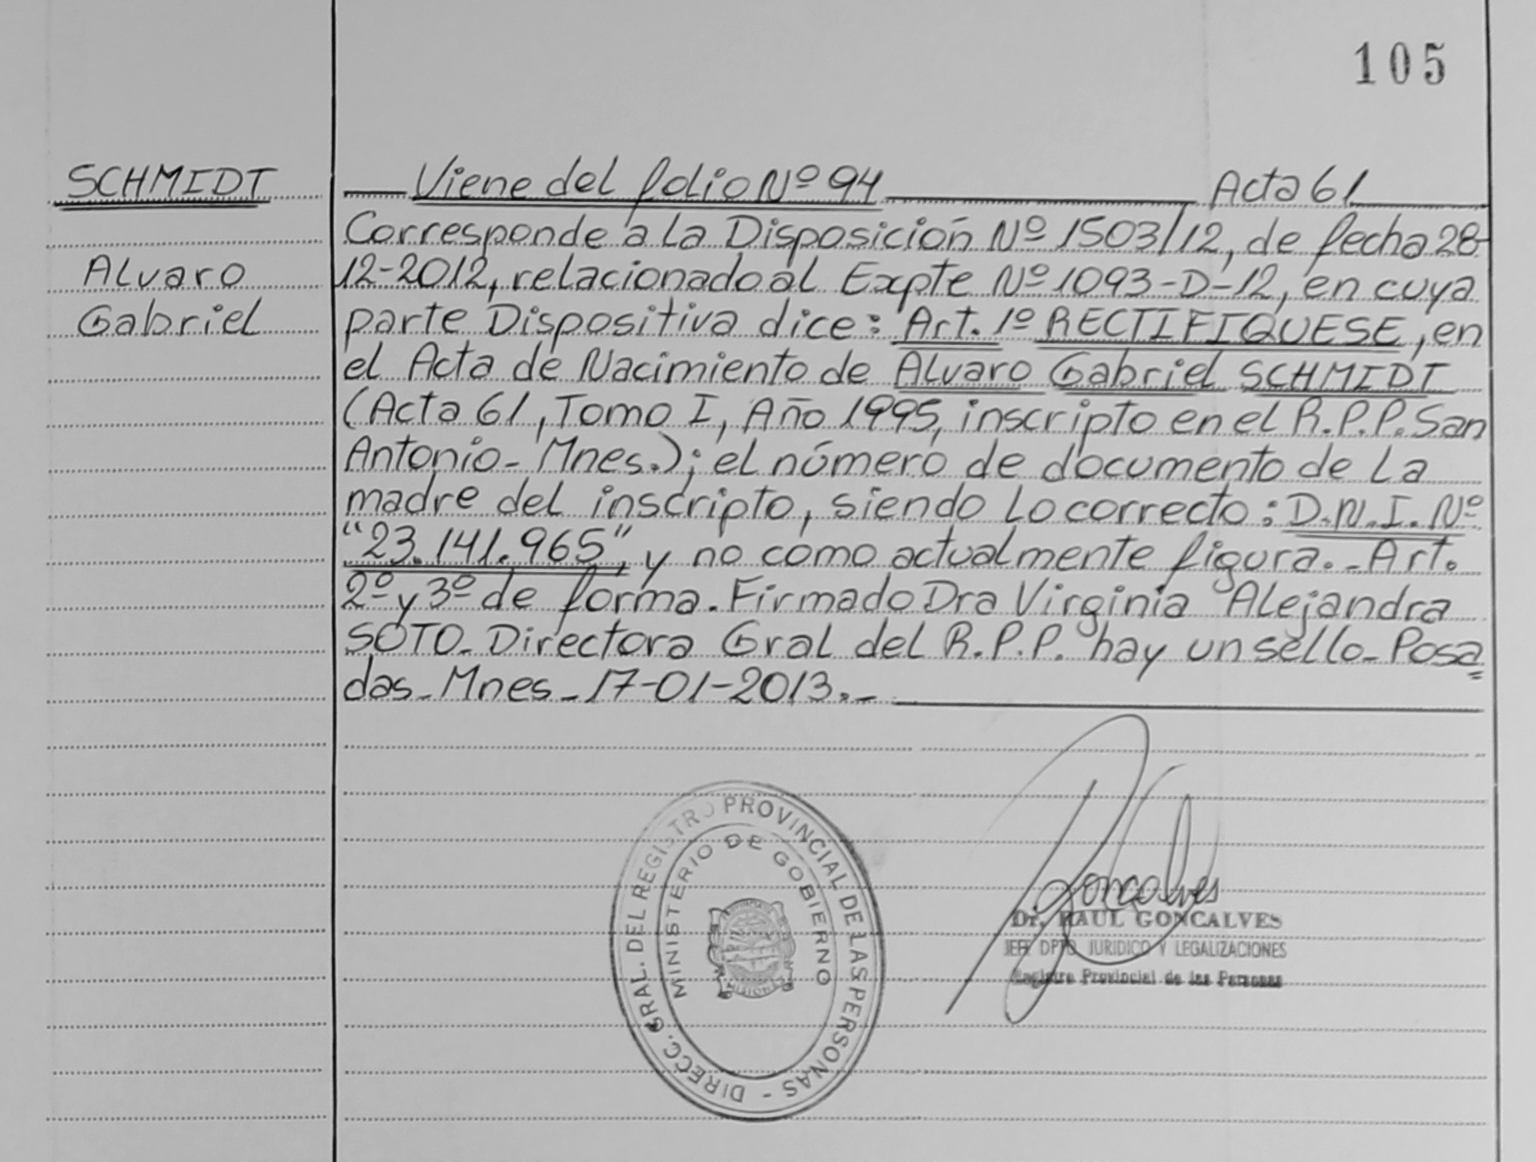 105
SCHMIDT
Alvaro
Gabriel
Viene del folio Nº 94 Acta 61
Corresponde a la Disposición Nº 1503/12, de fecha 28-
12-2012, relacionado al Expte Nº 1093-D-12, en cuya
parte Dispositiva dice: Art. 1º RECTIFIQUESE, en
el Acta de Nacimiento de Alvaro Gabriel SCHMIDT
(Acta 61, Tomo I, Año 1995, inscripto en el R.P.P. San
Antonio- Mnes.); el número de documento de la
madre del inscripto, siendo lo correcto: D.N.I. Nº
"23.141.965", y no como actualmente figura.- Art.
2º y 3º de forma. Firmado Dra Virginia Alejandra
SOTO- Directora Gral del R.P.P. hay un sello- Posa
das- Mnes- 17-01-2013.-
DIRECC. GRAL. DEL REGISTRO PROVINCIAL DE LAS PERSONAS -
MINISTERIO DE GOBIERNO
MISIONES
Goncalves
Dr. RAUL GONCALVES
JEFE DPTO. JURIDICO Y LEGALIZACIONES
Registro Provincial de las Personas